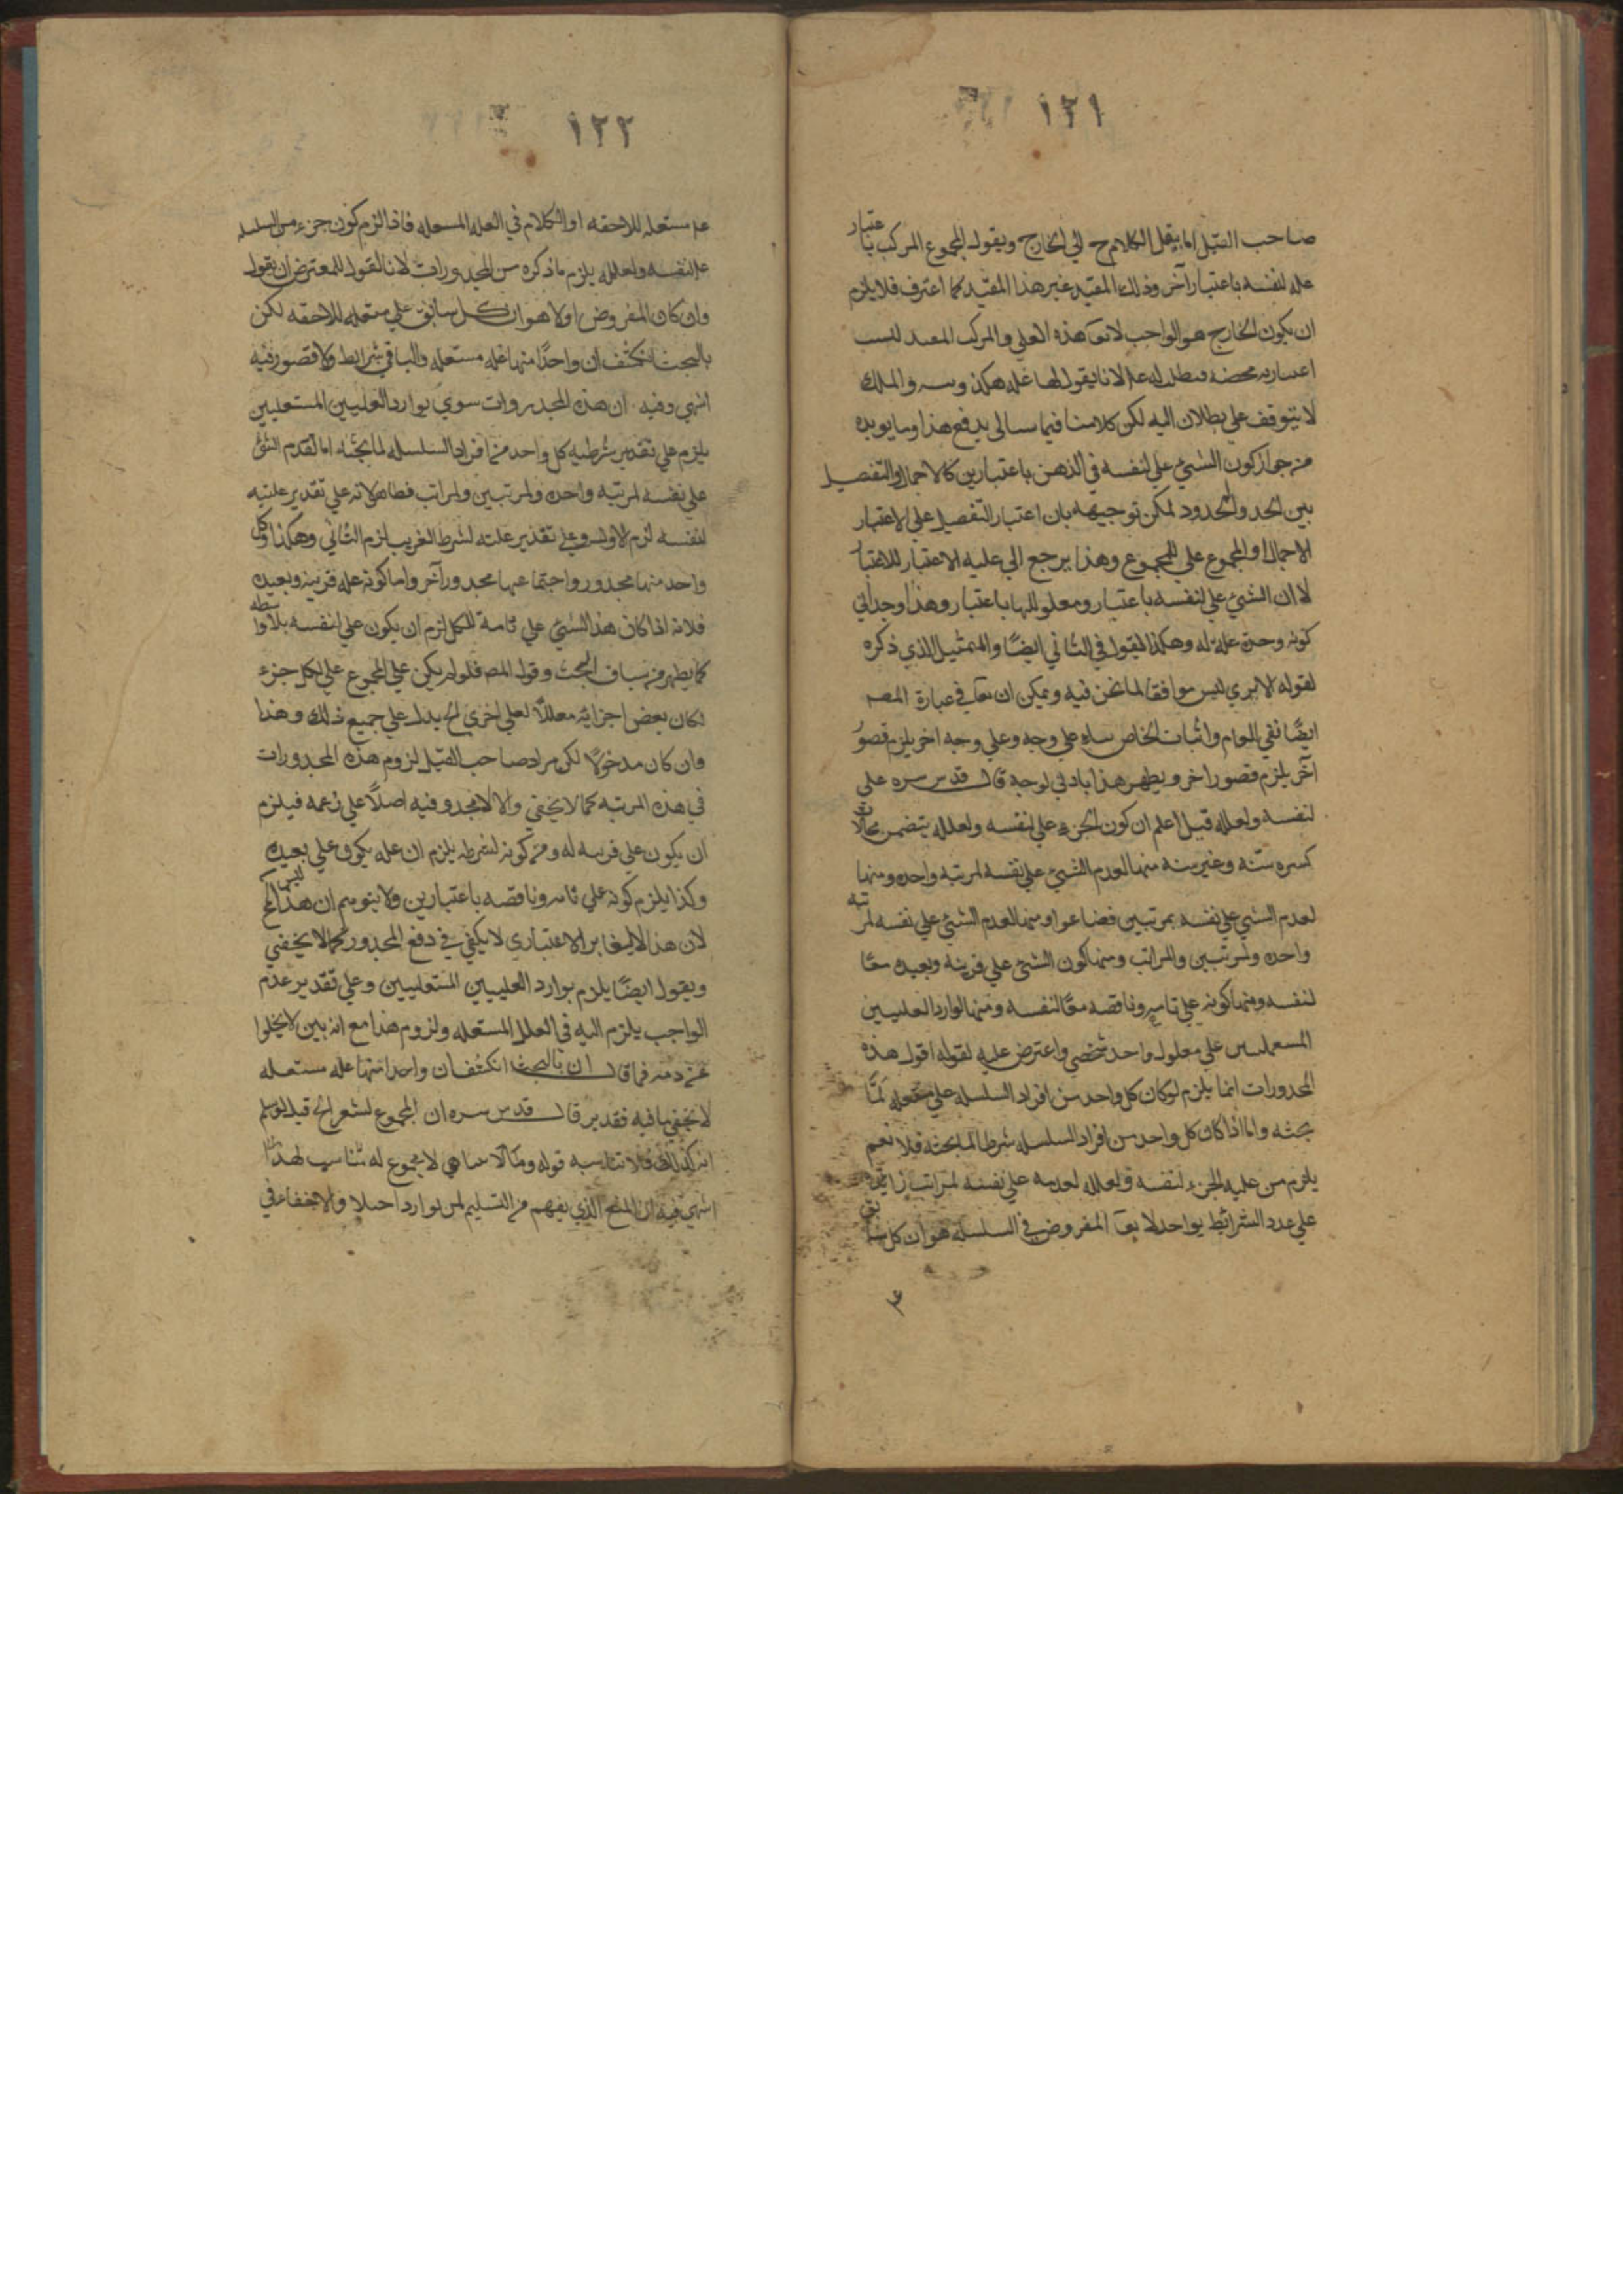 ١٢١
صاحب القيل اما ينقل الكلام ح الي الخارج ويقول المجموع المركب باعتبار
عله لنفسه باعتبار آخر وذلك المقيد غير هذا المقيد كما اعترف فلا يلزم
ان يكون الخارج هو الواجب لانه هذه العلي والمركب
اعتباريه محضه لانا يقول لها عله هكذا والملك
لا يتوقف علي بطلان اليه لكن كلامنا فيما يدفع هذا وما يويده
من جواز كون الشيئ علي لنفسه في الذهن باعتبارين كالاجمال والتفصيل
بين الحد والمحدود لمكن توجيهه بان اعتبار التفصيل علي لاعتبار
الاجمال او المجموع علي للمجموع وهذا يرجع الي عليه الاعتبار للاعتبار
لا ان الشيئ علي لنفسه باعتبار ومعلول لها باعتبار وهذا وجداني
كونه وحده علة له وهكذا يقول في الثاني ايضًا والتمثيل الذي ذكره
لقوله لا ليس موافقا لما نحن فيه ويمكن ان في عبارة المصـ
ايضًا نفي العام واثبات الخاص علي وجه وعلي وجه اخر يلزم قصور
آخر يلزم قصور اخر ويظهر هذا بادني توجه قال قدس سره علي
لنفسه ولعلله قيل اعلم ان كون الجزء علي لنفسه ولعلله يتضمن محالات
كثيره بينه وغير بينه منها لعدم الشيئ علي نفسه لمرتبه واحده ومنها
لعدم الشيئ علي نفسه بمرتبين فضاعوا ومنها لعدم الشيئ علي نفسه لمرتبه
واحده ولمرتبين والمراتب ومنها كون الشيئ علي قريبه وبعيده معًا
لنفسه ومنها كونه علي تامه وناقصه معًا لنفسه ومنها لوارد العلتيين
علي معلول واحد شخصي واعترض عليه لقوله اقول هذه
المحدورات انما يلزم لو كان كل واحد من افراد السلسله علي مستعله لما
بحثه واما اذا كان كل واحد من افراد السلسله شرطا لما بحثه فلا نعم
يلزم من عليه الجزء لنفسه ولعلله لعدمه علي نفسه لمراتب زايده
علي عدد الشرائط بواحد لا يقـ المفروض في السلسله هو ان كل سابق
١٢٢
مستعله للاحقه او الكلام في العله المستعله فاذا لزم كون جزء من السلسله
عله لنفسه ولعلله يلزم ما ذكره من المحدورات لانا القول للمعترض ان يقول
وان كان المفروض اولا هو ان كل سابق علي مستعله للاحقه لكن
بالبحث انكشف ان واحدًا منها عله مستعله والباقي شرايط ولا قصور فيه
انتهي وفيه ان هذه المحدورات سوي توارد العلتيين المستعليين
يلزم علي تقدير شرطيه كل واحد من افراد السلسله لما بحثه اما لقدم الشئ
علي نفسه لمرتبه واحده ولمرتبين ولمراتب فظاهر لانه علي تقدير عليته
لنفسه لزم الاول وعلي تقدير علته لشرط القريب لزم الثاني وهكذا وكل
واحد منها محدور واجتماعها محدور آخر واما كونه عله قريبه وبعيده
فلانه اذا كان هذا الشيئ علي تامة للكل لزم ان يكون علي لنفسه بلا واسطه
كما يظهر من سياق البحث وقول المصـ فلو لم يكن علي المجموع علي لكل جزء
لكان بعض اجزائه معللاً لعلي اخري الخ يدل علي جميع ذلك وهذا
وان كان مدخولاً لكن مراد صاحب القيل لزوم هذه المحدورات
في هذه المرتبه كما لا يخفي والا لا محدور فيه اصلاً علي زعمه فيلزم
ان يكون علي قريبه له ومن كونه لشرطه يلزم ان عله يكون علي بعيده
وكذا يلزم كونه علي تامه وناقصه باعتبارين ولا يتوهم ان هذا ليس بمحـ
لان هذا التغاير الاعتباري لا يكفي في دفع المحدور كما لا يخفي
ويقول ايضًا يلزم توارد العلتيين المستعليين وعلي تقدير عدم
الواجب يلزم اليه في العلل المستعله ولزوم هذا مع انه بين لا يخلوا
عن فما قال ان بالبحث انكشف ان واحدا منها عله مستعله
لا يخفي ما فيه فقد بر قال قدس سره ان المجموع لشعر الخ قيل لو سلم
انه كذلك فلا تناسبه قوله وما لا يتناهي لا مجموع له تناسب لهذا
انتهي فيه ان المنع الذي يفهم من التسليم لمن يوارد والا لاخفاء في